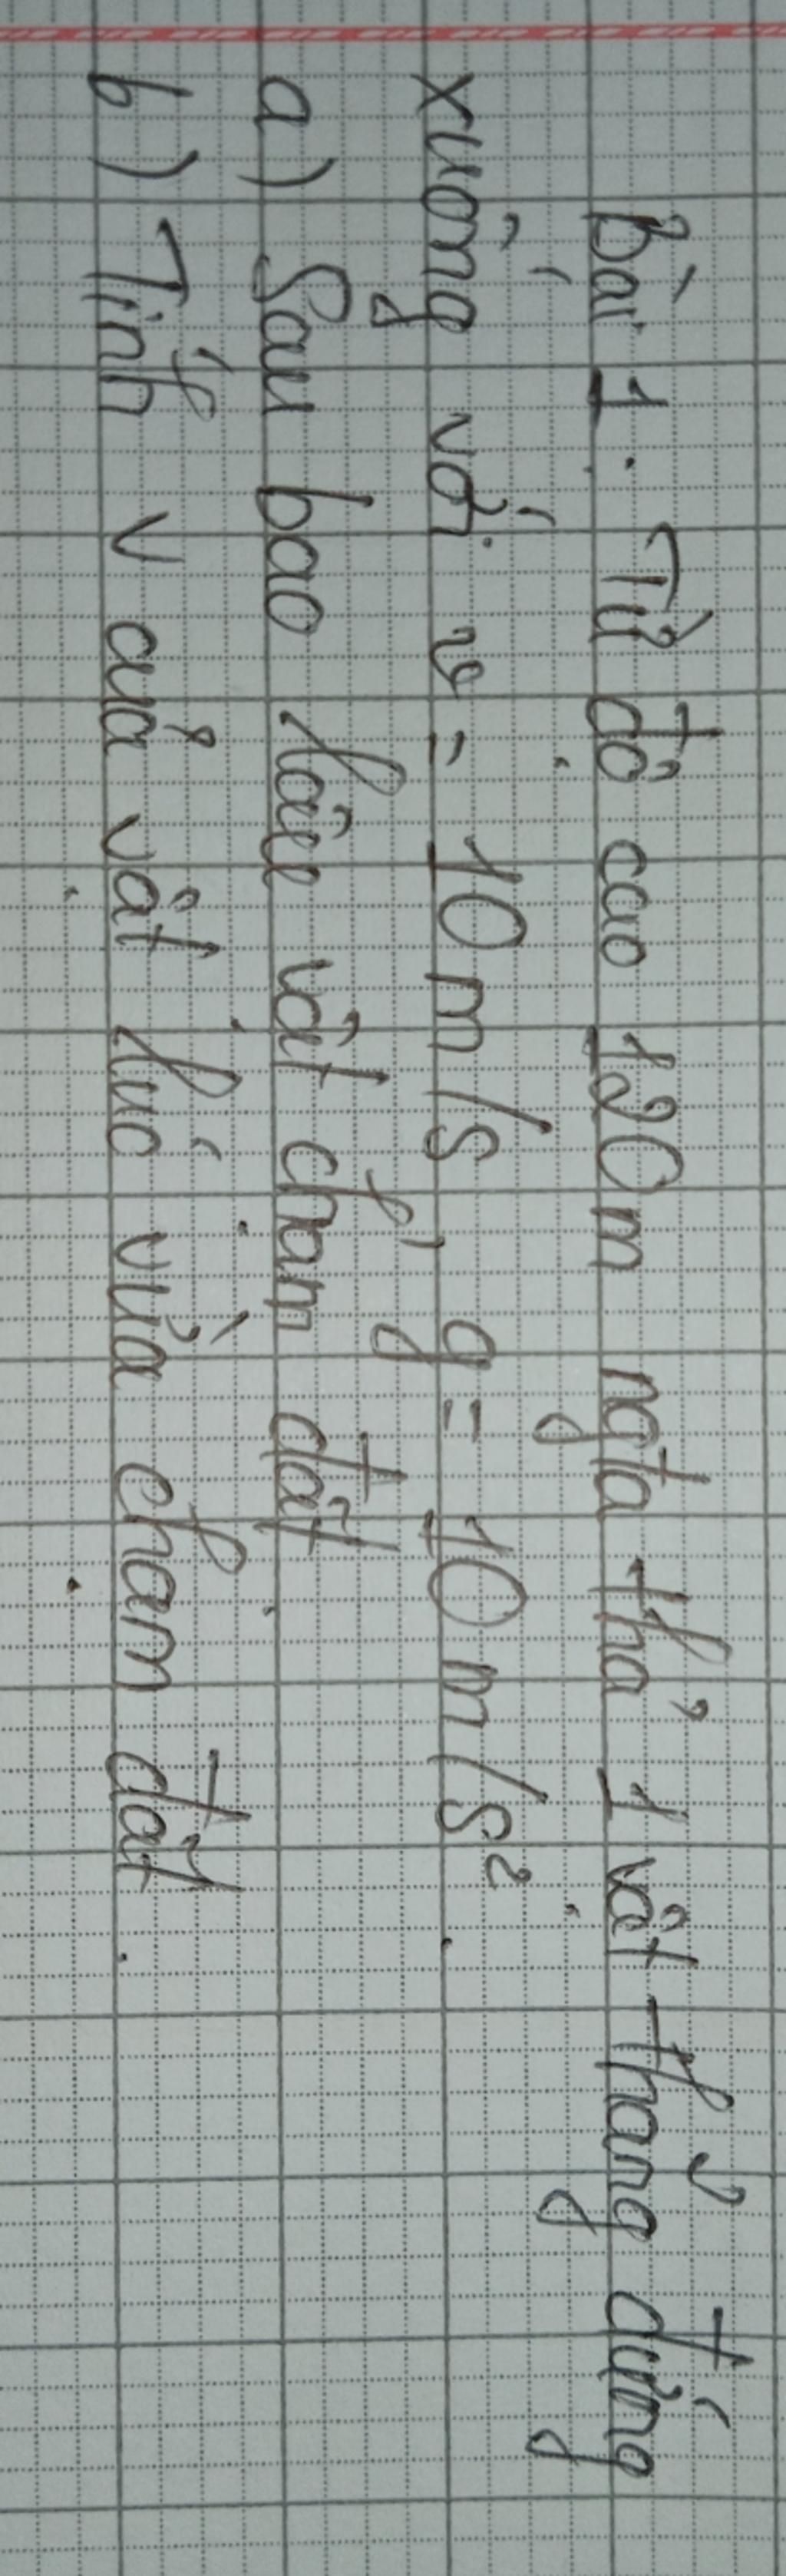 Bài 1. Từ độ cao 120m ngta thả 1 vật thẳng đứng
xuống với v = 10m/s, g = 10m/s²
a) Sau bao lâu vật chạm đất.
b) Tính v của vật lúc vừa chạm đất.